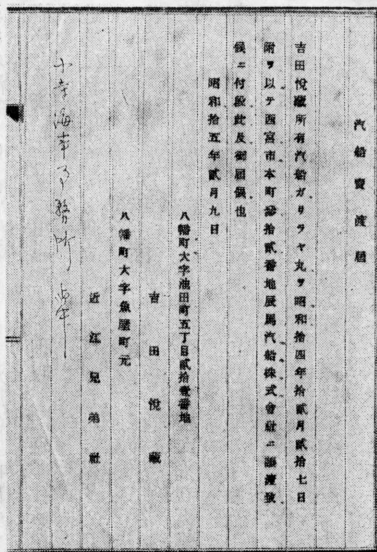 汽船賣渡屆
吉田悅藏所有汽船ガリラヤ丸ヲ昭和拾四年拾貳月貳拾七日
附ヲ以テ西宮市本町參拾貳番地辰馬汽船株式會社ニ讓渡致
候ニ付段此及御屆候也
昭和拾五年貳月九日
八幡町大字池田町五丁目貳拾壹番地
吉田悅藏
八幡町大字魚屋町元
近江兄弟社
海事事務所